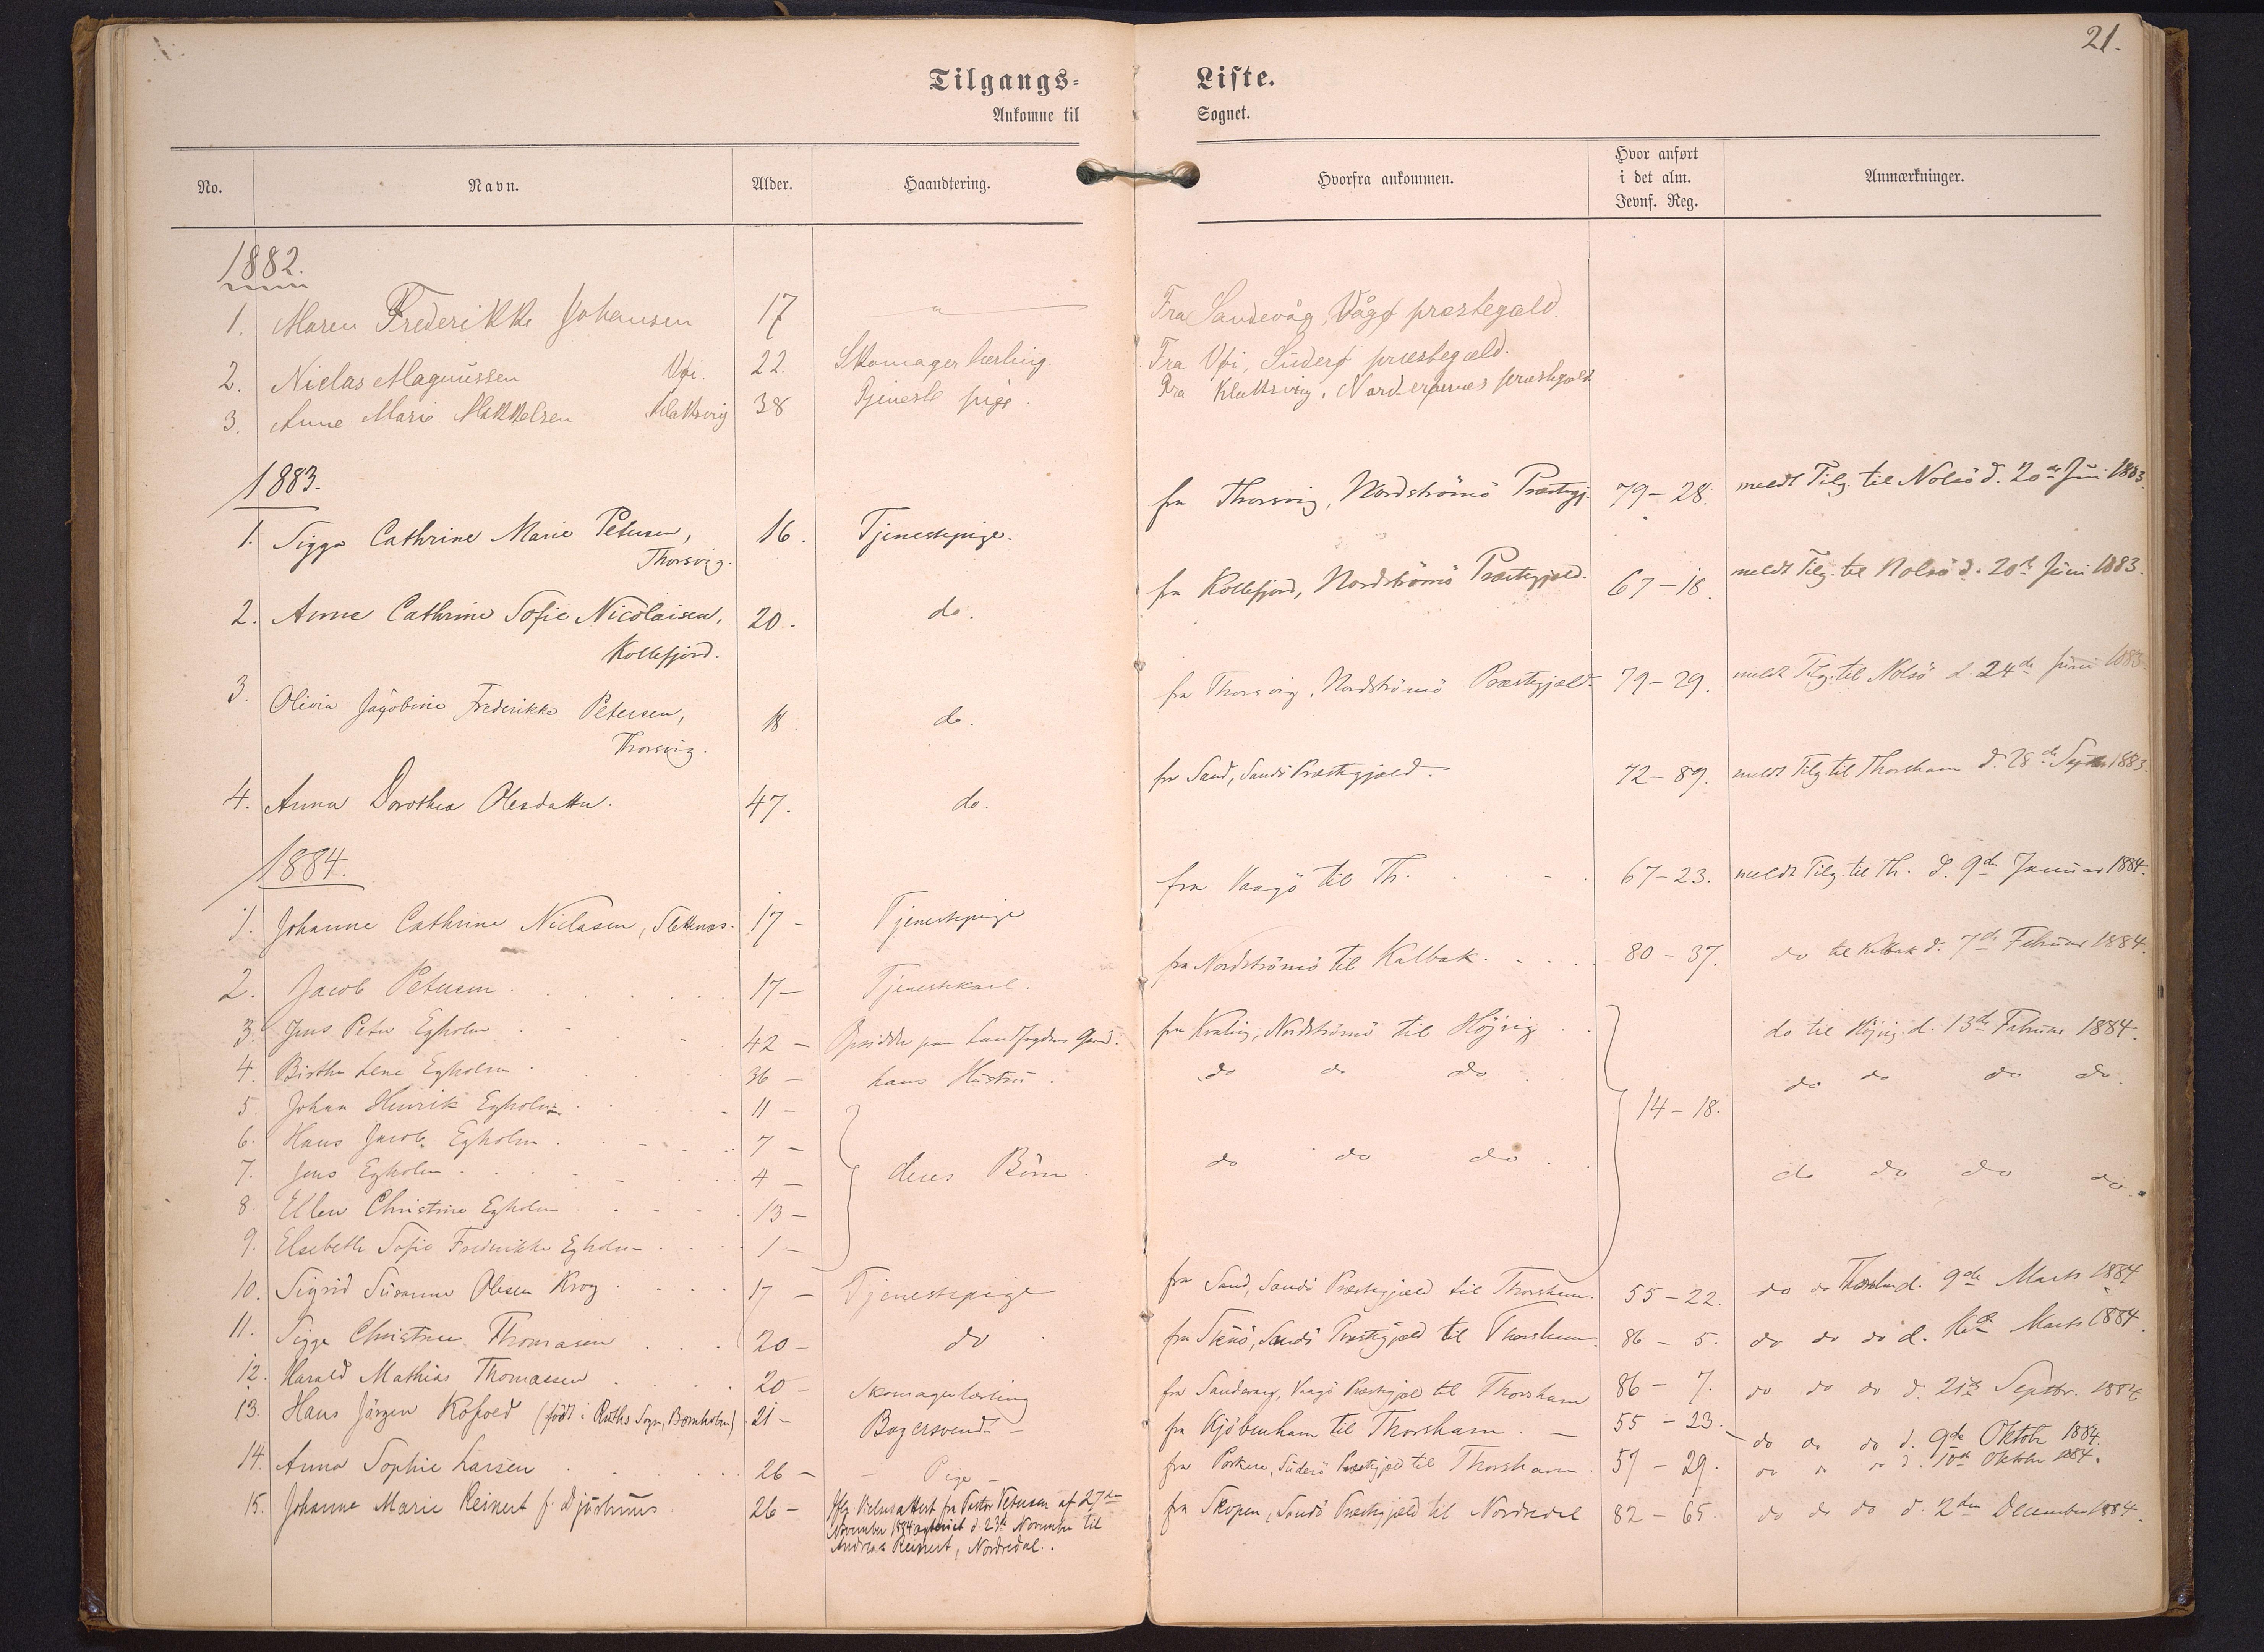 21.
Tilgangs= Liste.
Ankomne til Sognet.
No. Navn. Alder. Haandtering. Hvorfra ankommen. Hvor anført i det alm. Jevnf. Reg. Anmærkninger.
1882.
1. Maren Frederikke Johansen 17 " Fra Sandevåg, Vågø præstegæld.
2. Niclas Magnussen Vøi. 22. Skomagerlærling Fra Vøi, Süderø præstegæld.
3. Anne Marie Mikkelsen Klaksvig 38 Tjeneste pige. Fra Klaksvig, Norderøernes præstegæld
1883.
1. Sigga Cathrine Marie Petersen, 16. Tjenestepige. fra Thorsvig, Nordströmö Præstegj. 79-28. meldt Tilg. til Nolsö d. 20de Juni 1883.
Thorsvig.
2. Anne Cathrine Sofie Nicolaisen, 20. do. fra Kollefjord, Nordströmö Præstegjæld. 67-18. meldt Tilg. til Nolsö d. 20de Juni 1883.
Kollefjord.
3. Olivia Jagobine Frederikke Petersen, 18. do. fra Thorsvig, Nordströmö Præstegjæld. 79-29. meldt Tilg. til Nolsö d. 24de Juni 1883
Thorsvig.
4. Anna Dorothea Olesdatter. 47. do. fra Sand, Sandö Præstegjæld. 72-89. meldt Tilg. til Thorshavn d. 28de Septbr 1883.
1884.
1. Johanne Cathrine Niclasen, Slettenæs. 17- Tjenestepige fra Vaagö til Th. 67-23. meldt Tilg. til Th. d. 9de Januar 1884.
2. Jacob Petersen 17- Tjenestekarl. fra Nordströmö til Kalbak. 80-37. do til Kalbak d. 7de Februar 1884.
3. Jens Peter Egholm 42- Opsidder paa Landfogdens Gaard. fra Kvalvig, Nordströmö til Höjvig 14-18. do til Höjvig d. 13de Februar 1884.
4. Birthe Lene Egholm 36- hans Hustru. do do do do do do do.
5 Johan Henrik Egholm 11-
6. Hans Jacob Egholm 7-
7. Jens Egholm 4- deres Börn do do do do do do do.
8. Ellen Christine Egholm 13-
9. Elsebeth Sofie Frederikke Egholm 1-
10. Sigrid Susanne Olesen Krog 17- Tjenestepige fra Sand, Sandö Præstegjæld til Thorshavn. 55-22. do do Thorshavn d. 9de Marts 1884
11. Sigga Christine Thomasen 20- do fra Skuö, Sandö Præstegjæld til Thorshavn. 86-5. do do do d. Marts 1884.
12. Harald Mathias Thomassen 20- Skomagerlærling fra Sandevaag, Vaagö Præstegjæld til Thorshavn 86-7. do do do d. 21de Septbr. 1884
13. Hans Jörgen Kofoed (född i Ruths Sogn, Bornholm) 21- Bagersvend- fra Kjöbenhavn til Thorshavn. 55-23. do do do d. 9de Oktobr 1884.
14. Anna Sophie Larsen 26- Pige- fra Porkere, Suderö Præstegjæld til Thorshavn. 57-29. do do do d. 10de Oktobr 1884.
15. Johanne Marie Reinert f. Djurhuus 26- Iflg. Vielsesattest fra Pastor Petersen af 27de fra Skopen, Sandö Præstegjæld til Nordredal 82-65. do do do d. 2den December 1884.
November 1884 d 23de November til
Andreas Reinert, Nordredal.